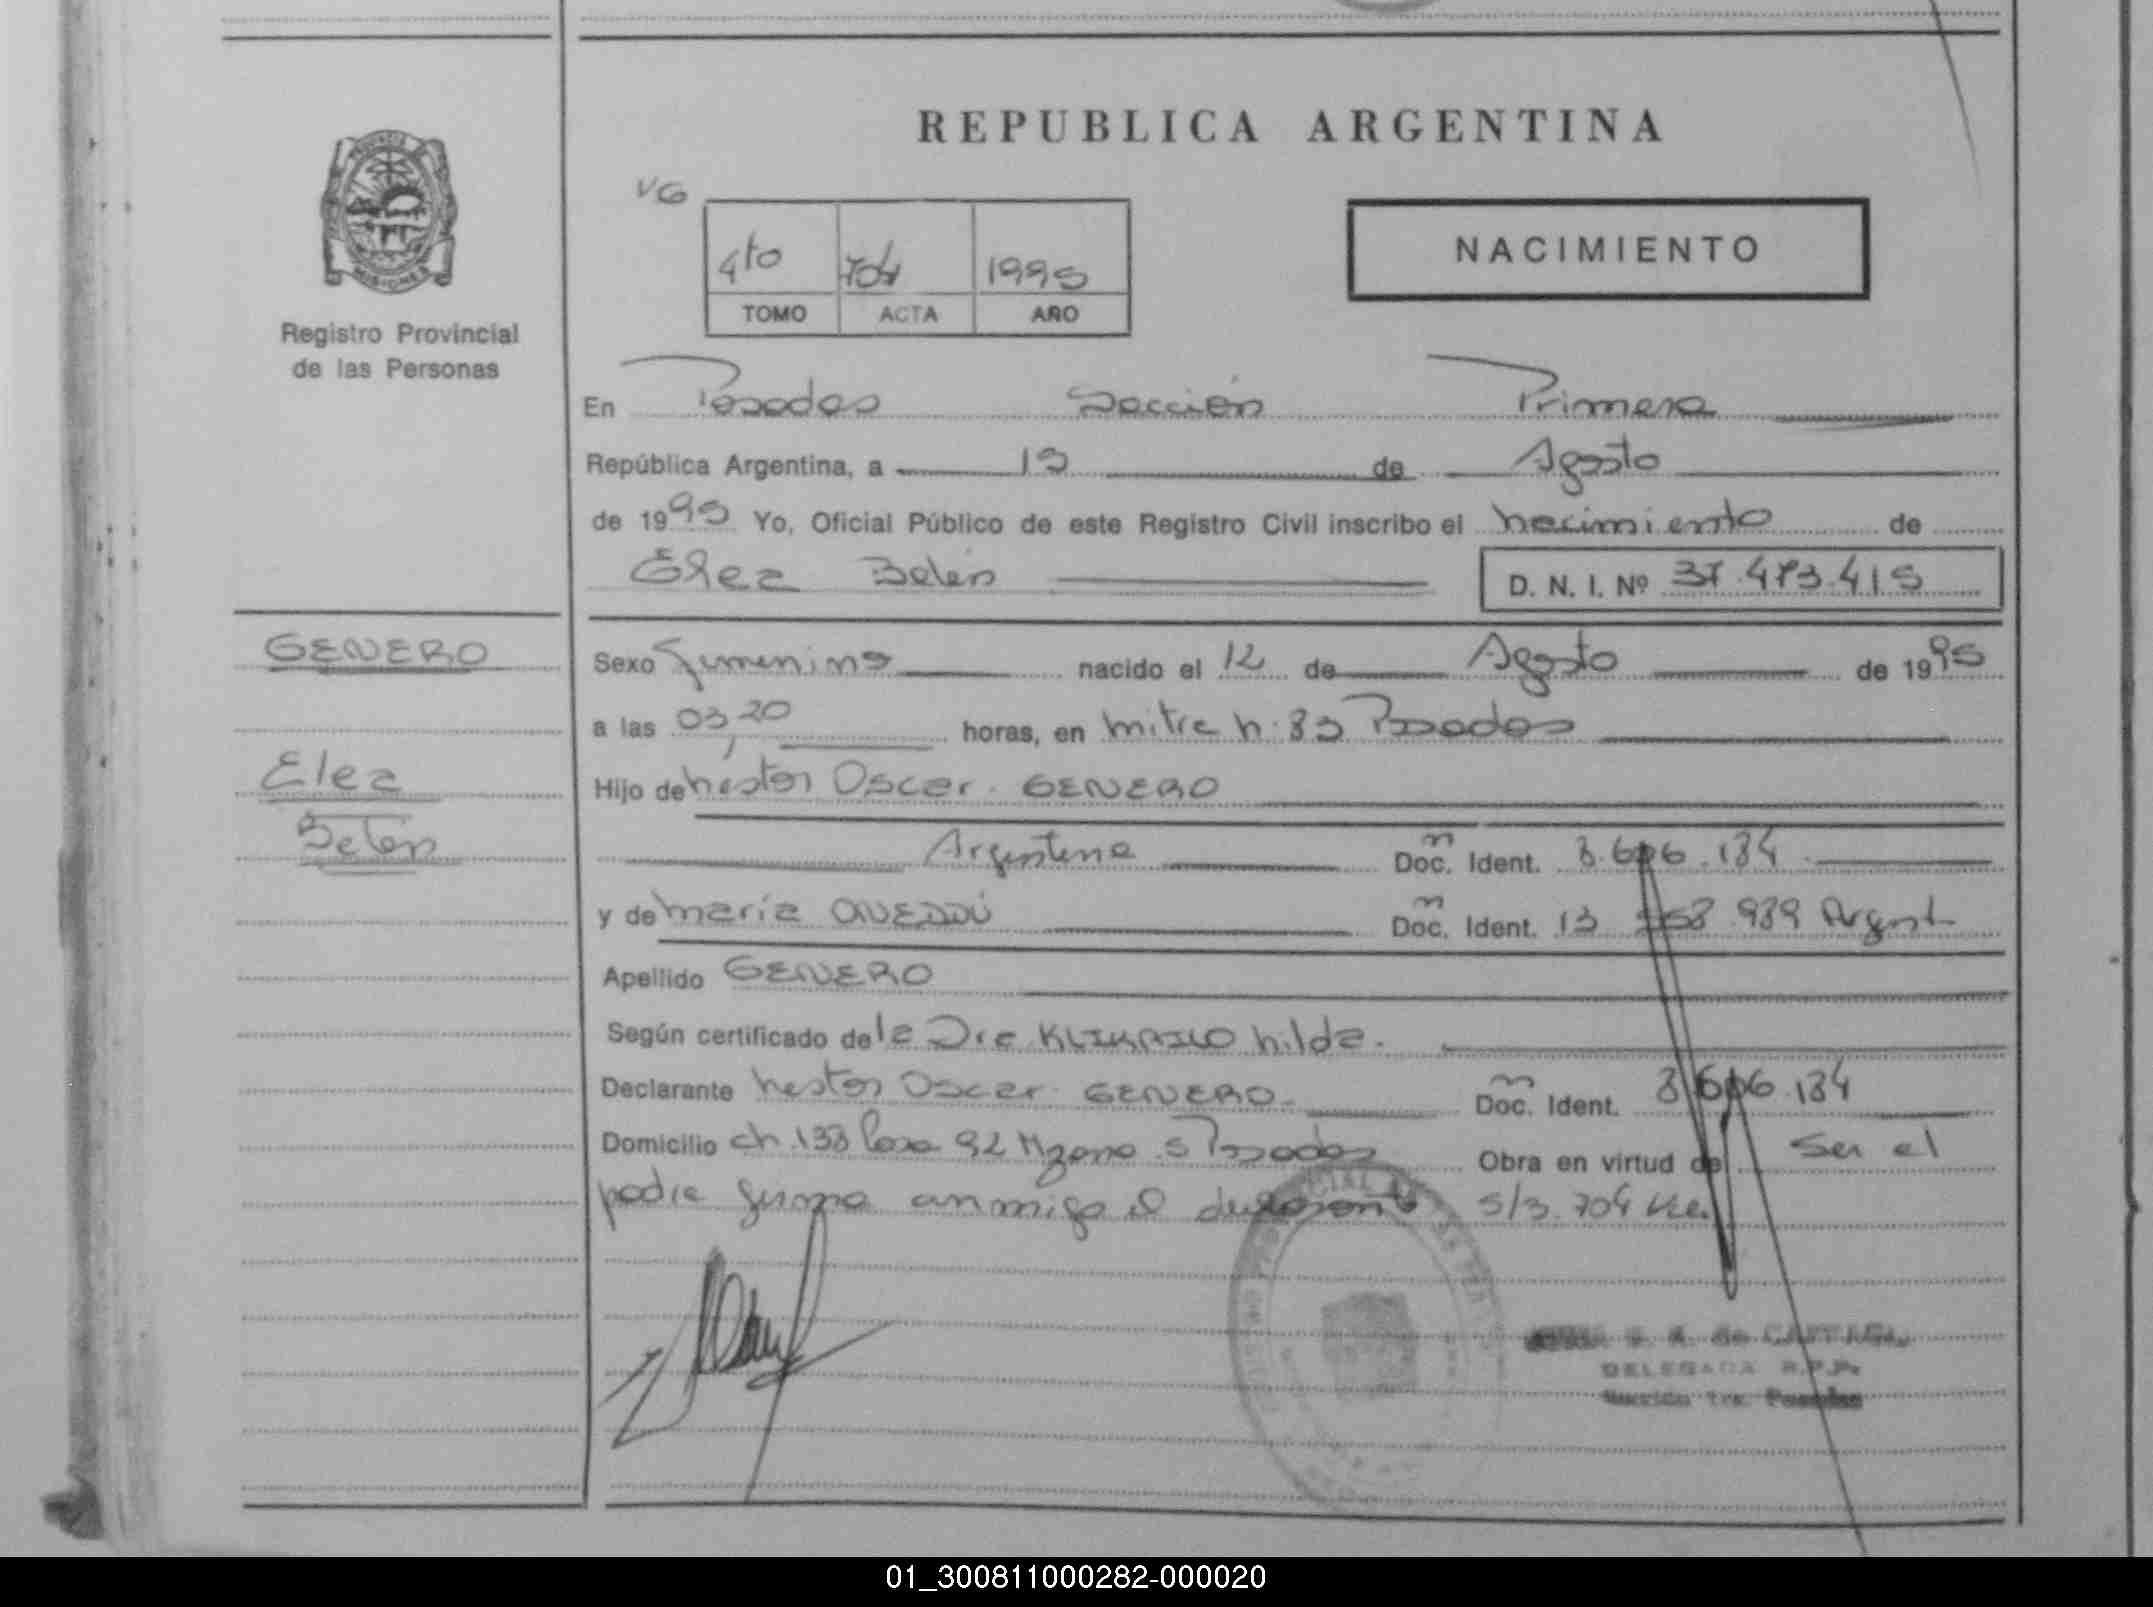 REPUBLICA ARGENTINA
VG
4to 704 1995
TOMO ACTA AÑO
NACIMIENTO
PROVINCIA DE MISIONES
Registro Provincial
de las Personas
En Posadas Sección Primera
República Argentina, a 15 de Agosto
de 1995 Yo, Oficial Público de este Registro Civil inscribo el nacimiento de
Belén
D. N. I. Nº 37.473.415
GENERO
Belén
Sexo Femenino nacido el 12 de Agosto de 1995
a las 03,20 horas, en mitre n: 83 Posadas
Hijo de nestor Oscar GENERO
Argentina Doc. Ident. 8.606.184
y de maria Doc. Ident. 13 939 Argent
Apellido GENERO
Según certificado de la Dra hilda.
Declarante nestor Oscar GENERO Doc. Ident. 8 606.184
Domicilio ch 138 Casa 92 Mzana 5 Posadas Obra en virtud de Ser el
padre firma conmigo el declarante S/3. 704
S. A. de
DELEGADA R.P.P.
Sección 1ra. Posadas
01_300811000282-000020